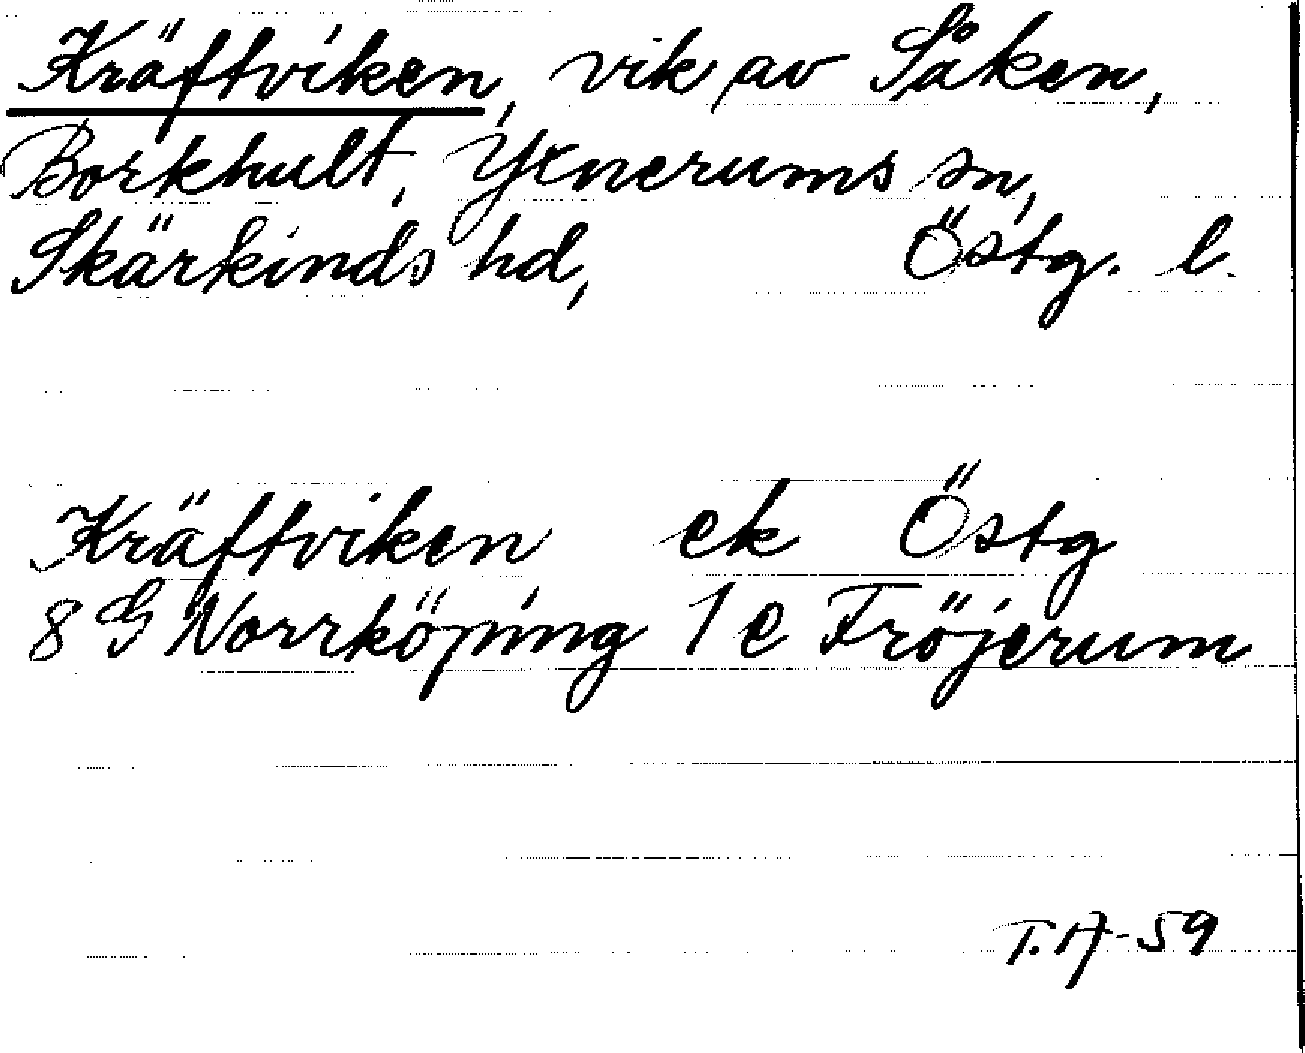 Kräftviken, vik av Såken,
Borkhult, Yxnerums sn,
Skärkinds hd, Östg. l.
Kräftviken ek Östg
8 G Norrköping 1 e Fröjerum
T.A-59